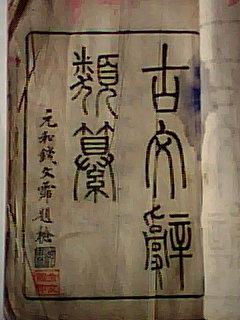 古文辭
類纂
元和錢文霈題檢